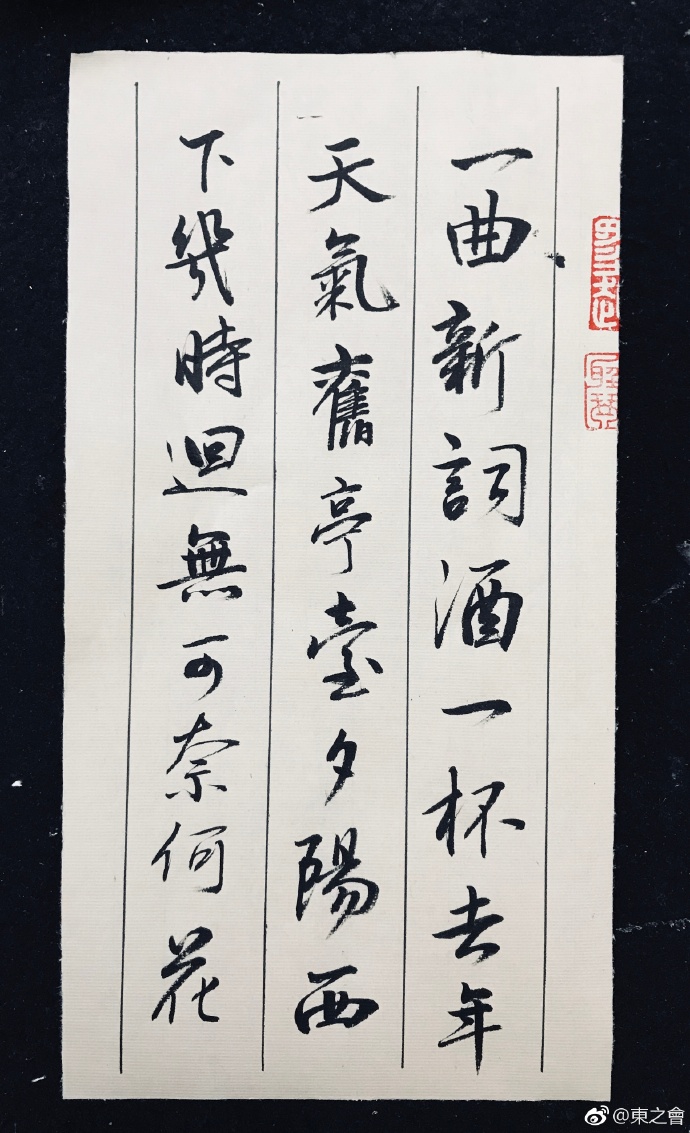 一曲新詞酒一杯去年
天氣舊亭臺夕陽西
下幾時迴無可奈何花
@東之會